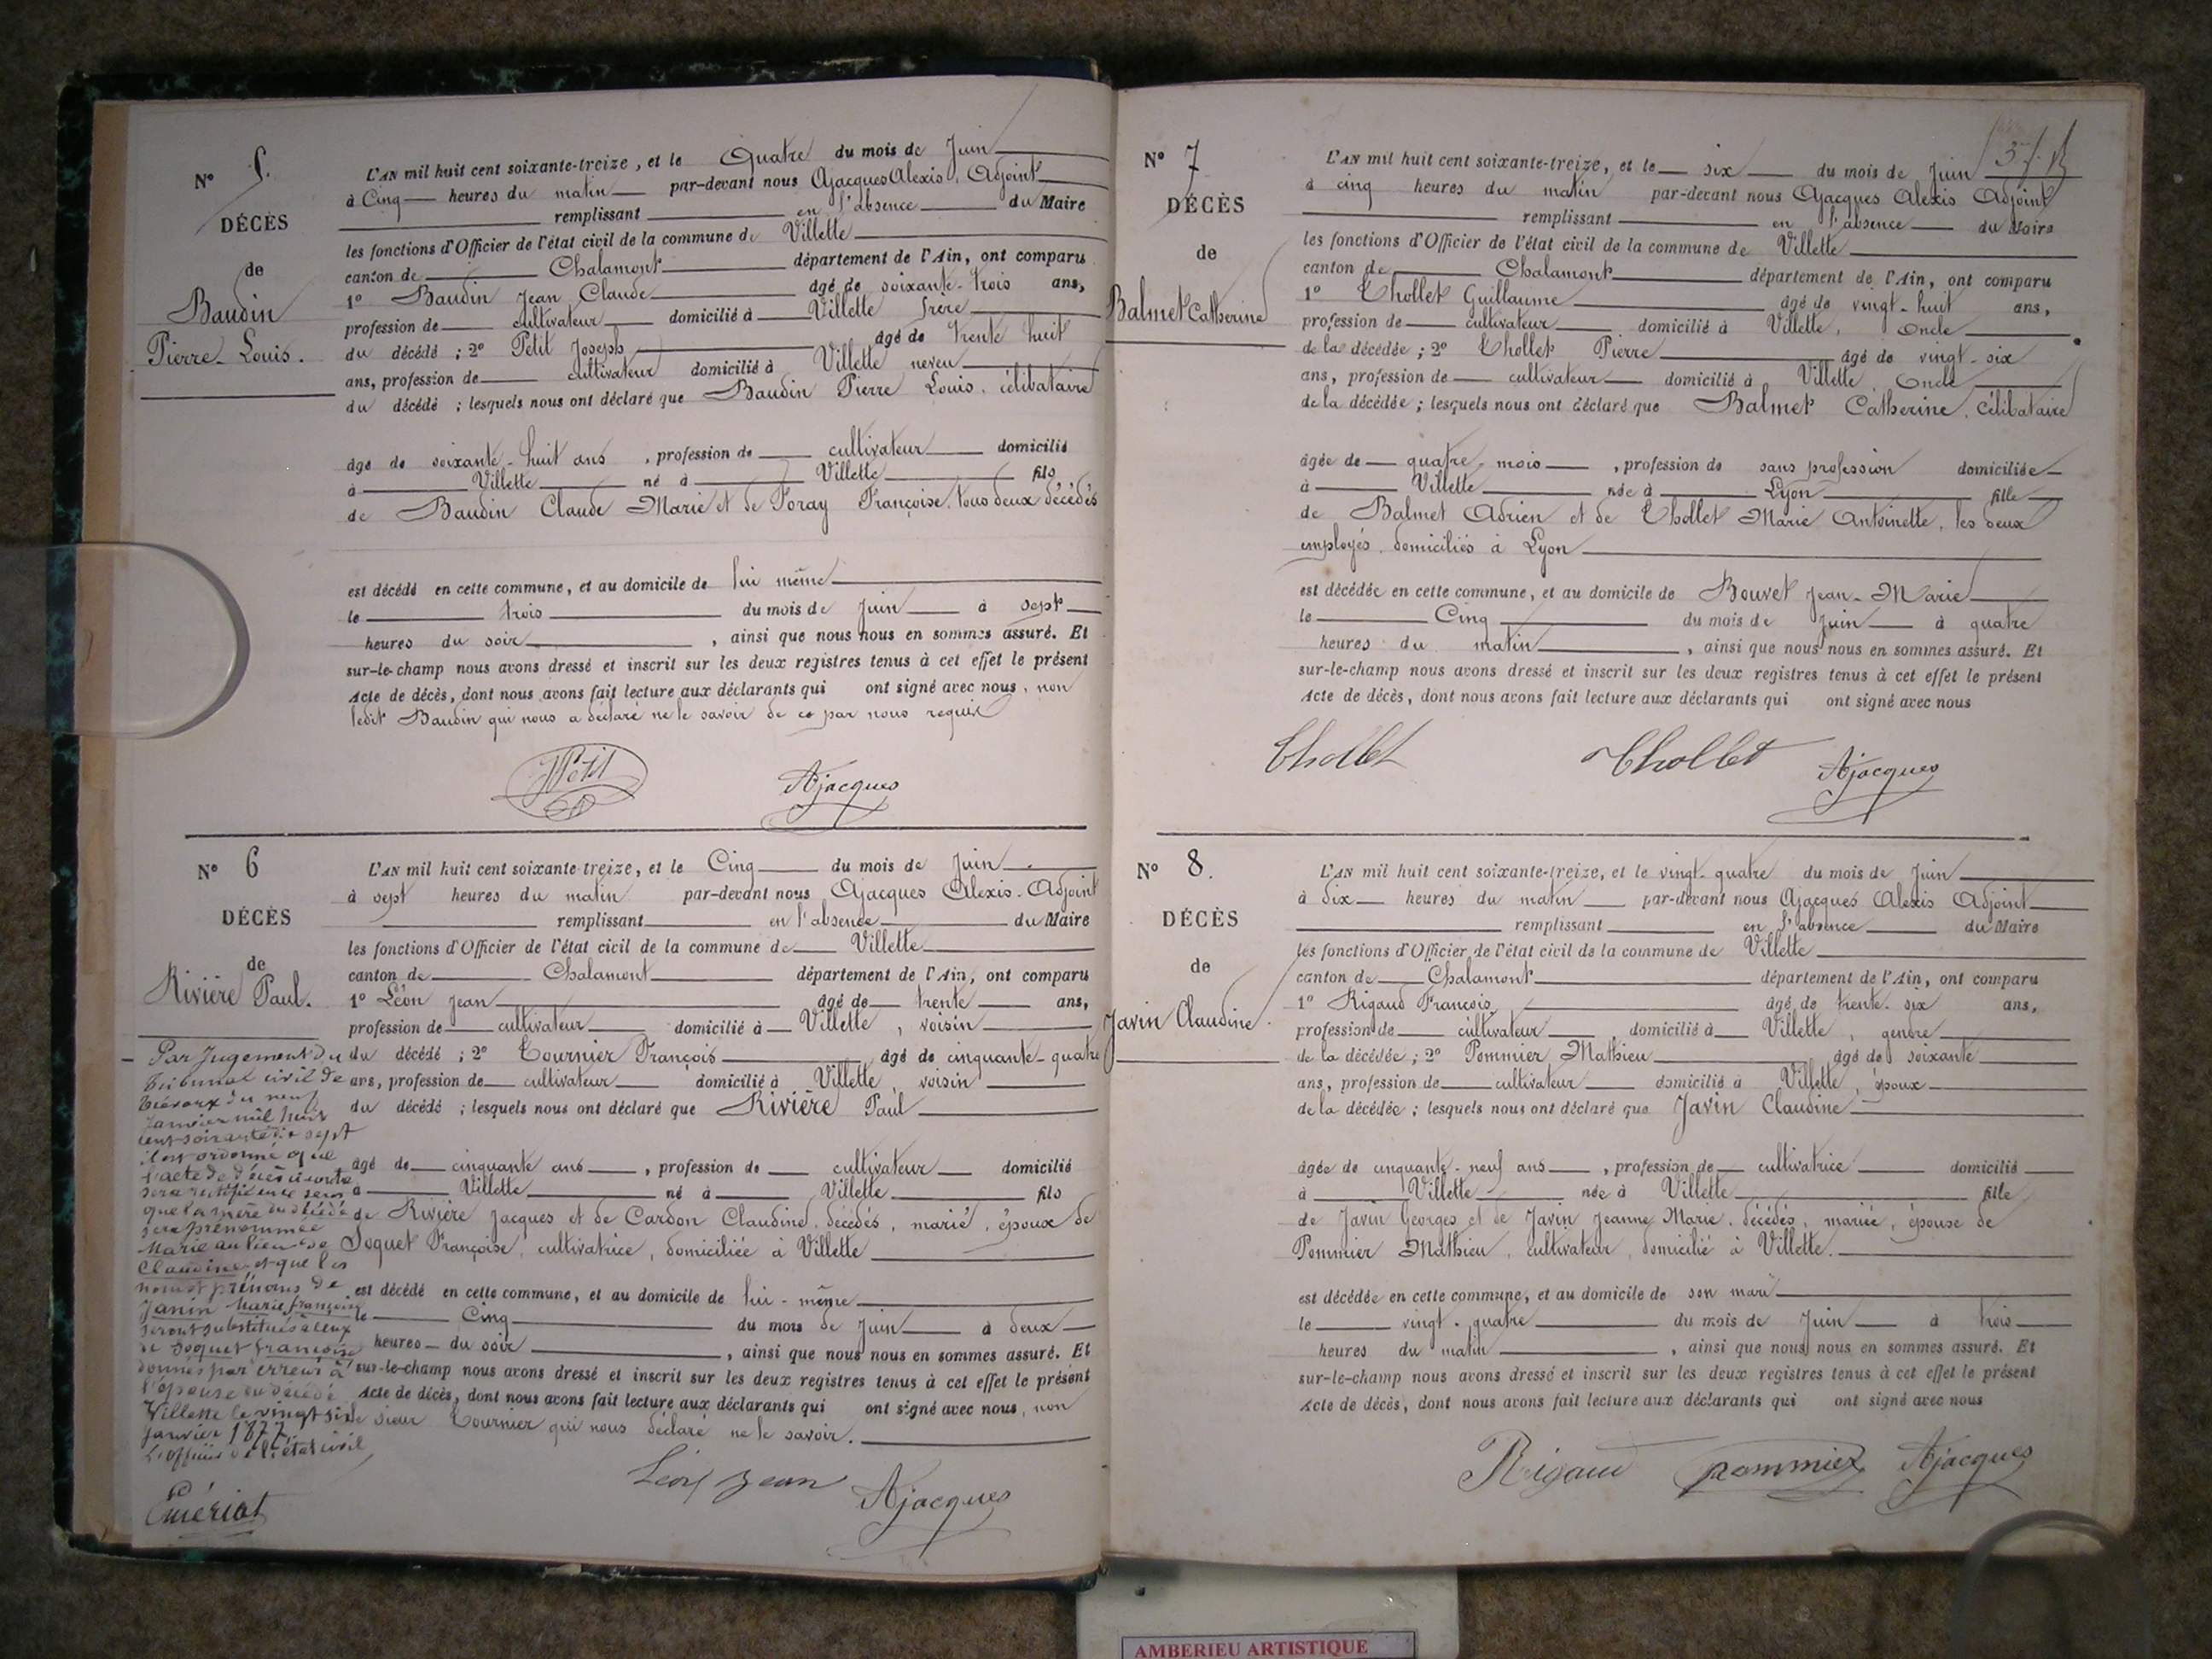 N° 5.
DÉCÈS
de
Baudin
Pierre-Louis.
L'AN mil huit cent soixante-treize, et le Quatre du mois de Juin
à Cinq heures du matin par-devant nous Ajacques Alexis, Adjoint
remplissant en l'absence du Maire
les fonctions d'Officier de l'état civil de la commune de Villette
canton de Chalamont département de l'Ain, ont comparu
1° Baudin Jean Claude âgé de soixante-trois ans,
profession de cultivateur domicilié à Villette frère
du décédé ; 2° Petit Joseph âgé de trente huit
ans, profession de cultivateur domicilié à Villette neveu
du décédé ; lesquels nous ont déclaré que Baudin Pierre Louis, célibataire
âgé de soixante-huit ans, profession de cultivateur domicilié
à Villette né à Villette fils
de Baudin Claude Marie et de Foray Françoise, tous deux décédés
est décédé en cette commune, et au domicile de lui même
le trois du mois de Juin à sept
heures du soir, ainsi que nous nous en sommes assuré. Et
sur-le-champ nous avons dressé et inscrit sur les deux registres tenus à cet effet le présent
Acte de décès, dont nous avons fait lecture aux déclarants qui ont signé avec nous, non
ledit Baudin qui nous a déclaré ne le savoir de ce par nous requis
Petit Ajacques
N° 6
DÉCÈS
de
Rivière Paul.
L'AN mil huit cent soixante-treize, et le Cinq du mois de Juin
à sept heures du matin par-devant nous Ajacques Alexis-Adjoint
remplissant en l'absence du Maire
les fonctions d'Officier de l'état civil de la commune de Villette
canton de Chalamont département de l'Ain, ont comparu
1° Léon Jean âgé de trente ans,
profession de cultivateur domicilié à Villette, voisin
du décédé ; 2° Tournier François âgé de cinquante-quatre
ans, profession de cultivateur domicilié à Villette, voisin
du décédé ; lesquels nous ont déclaré que Rivière Paul
âgé de cinquante ans, profession de cultivateur domicilié
à Villette né à Villette fils
de Rivière Jacques et de Cardon Claudine, décédés, marié, époux de
Joguet Françoise, cultivatrice, domiciliée à Villette
est décédé en cette commune, et au domicile de lui-même
le Cinq du mois de Juin à deux
heures du soir, ainsi que nous nous en sommes assuré. Et
sur-le-champ nous avons dressé et inscrit sur les deux registres tenus à cet effet le présent
Acte de décès, dont nous avons fait lecture aux déclarants qui ont signé avec nous, non
le sieur Tournier qui nous déclaré ne le savoir.
Léon Jean Ajacques
Par Jugement du
Tribunal civil de
Trévoux du neuf
Janvier mil huit
cent soixante dix sept
il est ordonné que
l'acte de décès ci contre
sera rectifié en ce sens
que la mère du décédé
sera prénommée
Marie au lieu de
Claudine et que les
nom et prénoms de
Janin Marie françoise
seront substitués à ceux
de Joguet françoise
donnés par erreur à
l'épouse du décédé
Villette le vingt six
janvier 1877
L'officier de l'état civil
Émériat
N° 7
DÉCÈS
de
Balmet Catherine
L'AN mil huit cent soixante-treize, et le six du mois de Juin
à cinq heures du matin par-devant nous Ajacques Alexis Adjoint
remplissant en l'absence du Maire
les fonctions d'Officier de l'état civil de la commune de Villette
canton de Chalamont département de l'Ain, ont comparu
1° Thollet Guillaume âgé de vingt-huit ans,
profession de cultivateur domicilié à Villette, Oncle
de la décédée ; 2° Thollet Pierre âgé de vingt-six
ans, profession de cultivateur domicilié à Villette, Oncle
de la décédée ; lesquels nous ont déclaré que Balmet Catherine, célibataire
âgée de quatre mois, profession de sans profession domiciliée
à Villette née à Lyon fille
de Balmet Adrien et de Thollet Marie Antoinette, les deux
employés, domiciliés à Lyon
est décédée en cette commune, et au domicile de Bouvet Jean-Marie
le Cinq du mois de Juin à quatre
heures du matin, ainsi que nous nous en sommes assuré. Et
sur-le-champ nous avons dressé et inscrit sur les deux registres tenus à cet effet le présent
Acte de décès, dont nous avons fait lecture aux déclarants qui ont signé avec nous
Thollet Thollet Ajacques
N° 8.
DÉCÈS
de
Javin Claudine.
L'AN mil huit cent soixante-treize, et le vingt-quatre du mois de Juin
à dix heures du matin par-devant nous Ajacques Alexis Adjoint
remplissant en l'absence du Maire
les fonctions d'Officier de l'état civil de la commune de Villette
canton de Chalamont département de l'Ain, ont comparu
1° Rigaud François âgé de trente-six ans,
profession de cultivateur domicilié à Villette, gendre
de la décédée ; 2° Pommier Mathieu âgé de soixante
ans, profession de cultivateur domicilié à Villette, époux
de la décédée ; lesquels nous ont déclaré que Javin Claudine
âgée de cinquante-neuf ans, profession de cultivatrice domicilié
à Villette née à Villette fille
de Javin Georges et de Javin Jeanne Marie, décédés, mariée, épouse de
Pommier Mathieu, cultivateur, domicilié à Villette.
est décédée en cette commune, et au domicile de son mari
le vingt-quatre du mois de Juin à trois
heures du matin, ainsi que nous nous en sommes assuré. Et
sur-le-champ nous avons dressé et inscrit sur les deux registres tenus à cet effet le présent
Acte de décès, dont nous avons fait lecture aux déclarants qui ont signé avec nous
Rigaud pommier Ajacques
AMBERIEU ARTISTIQUE